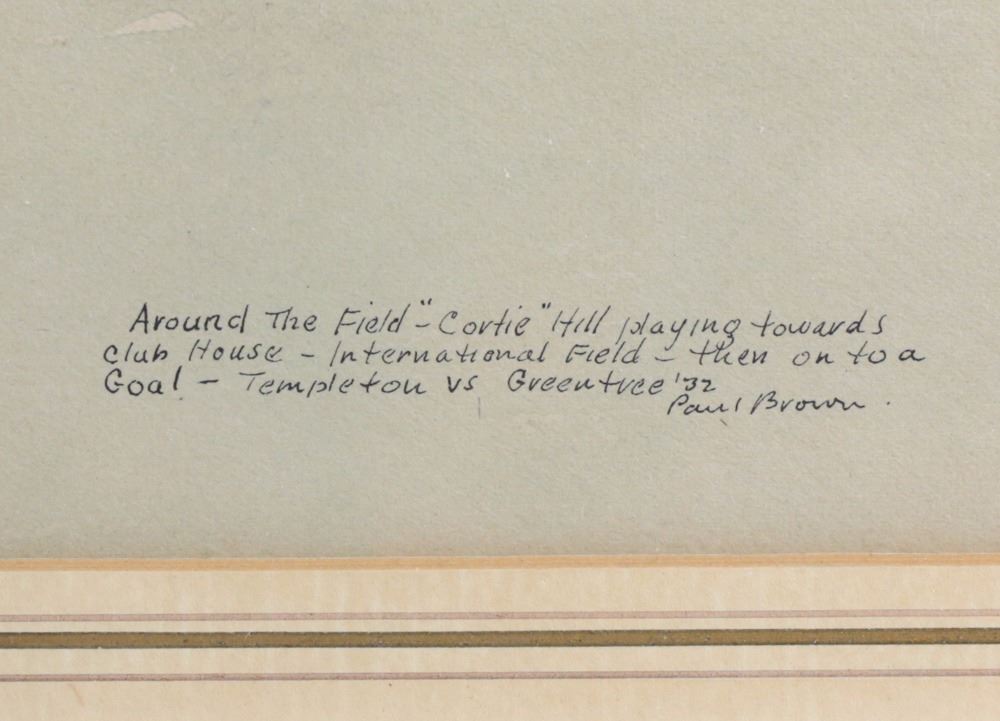 Around The Field - "Cortie" Hill playing towards
Club House - International Field - then on to a
Goal - Templeton vs Greentree '32
Paul Brown.